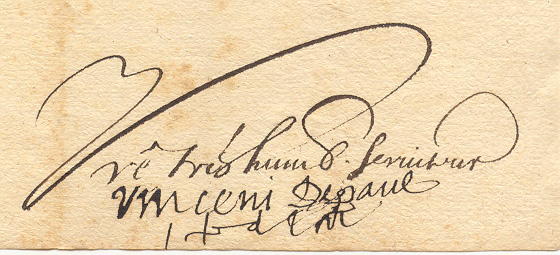 vʳᵉ très humb. serviteur
Vincent Depaul
i. p. d. l. m.